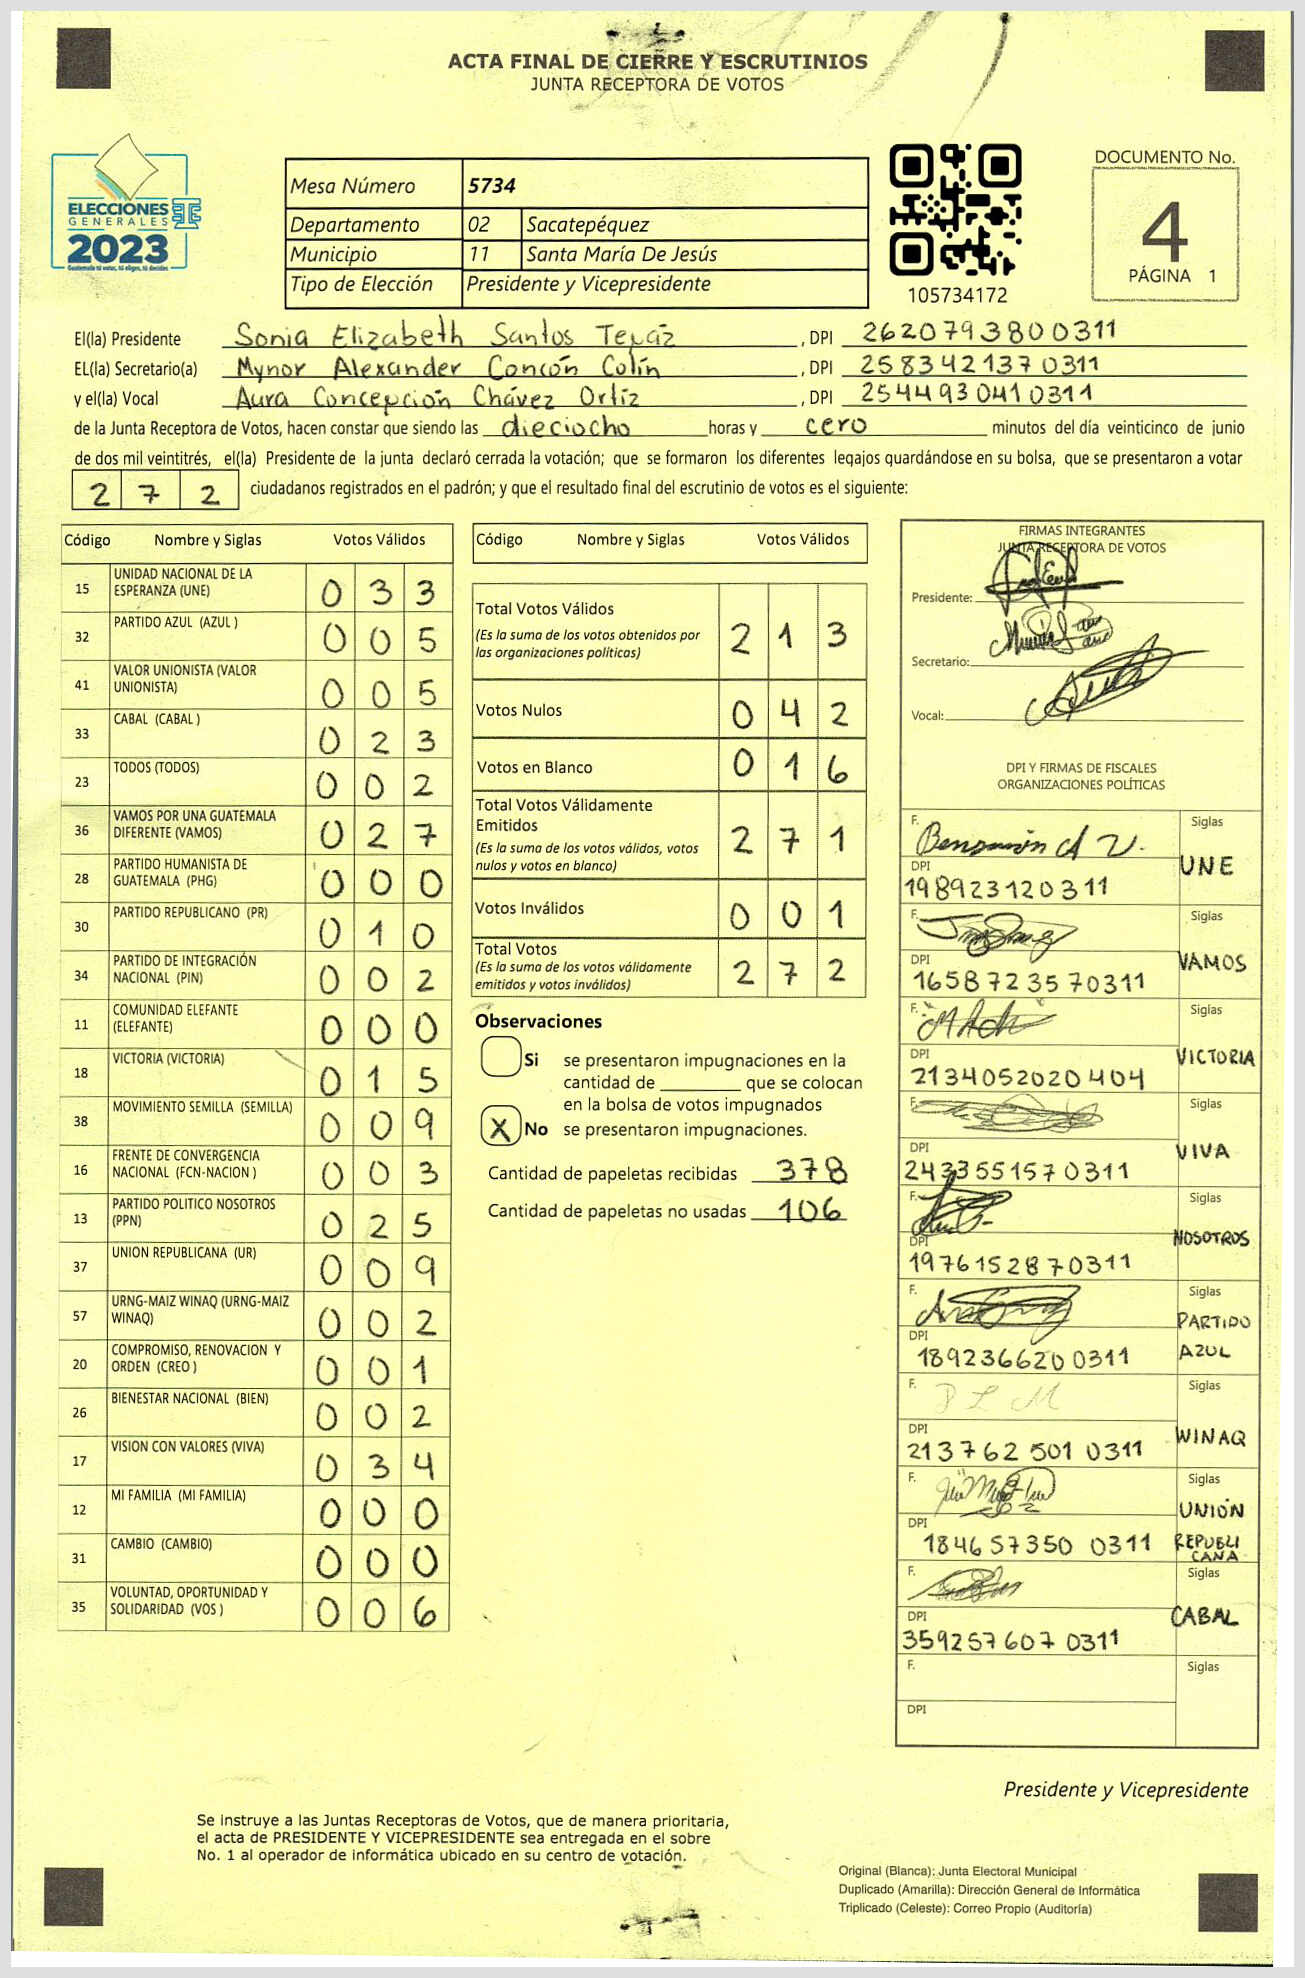 ACTA FINAL DE CIERRE Y ESCRUTINIOS
JUNTA RECEPTORA DE VOTOS
ELECCIONES
GENERALES
2023
Guatemala tú votas, tú eliges, tú decides
Mesa Número 5734
Departamento 02 Sacatepéquez
Municipio 11 Santa María De Jesús
Tipo de Elección Presidente y Vicepresidente
105734172
DOCUMENTO No.
4
PÁGINA 1
El(la) Presidente Sonia Elizabeth Santos , DPI 2620793800311
EL(la) Secretario(a) Mynor Alexander Concón Colín , DPI 2583421370311
y el(la) Vocal Aura Concepción Chávez Ortíz , DPI 2544930410311
de la Junta Receptora de Votos, hacen constar que siendo las dieciocho horas y cero minutos del día veinticinco de junio
de dos mil veintitrés, el(la) Presidente de la junta declaró cerrada la votación; que se formaron los diferentes legajos guardándose en su bolsa, que se presentaron a votar
2 7 2 ciudadanos registrados en el padrón; y que el resultado final del escrutinio de votos es el siguiente:
Código Nombre y Siglas Votos Válidos
15 UNIDAD NACIONAL DE LA ESPERANZA (UNE) 0 3 3
32 PARTIDO AZUL (AZUL ) 0 0 5
41 VALOR UNIONISTA (VALOR UNIONISTA) 0 0 5
33 CABAL (CABAL ) 0 2 3
23 TODOS (TODOS) 0 0 2
36 VAMOS POR UNA GUATEMALA DIFERENTE (VAMOS) 0 2 7
28 PARTIDO HUMANISTA DE GUATEMALA (PHG) 0 0 0
30 PARTIDO REPUBLICANO (PR) 0 1 0
34 PARTIDO DE INTEGRACIÓN NACIONAL (PIN) 0 0 2
11 COMUNIDAD ELEFANTE (ELEFANTE) 0 0 0
18 VICTORIA (VICTORIA) 0 1 5
38 MOVIMIENTO SEMILLA (SEMILLA) 0 0 9
16 FRENTE DE CONVERGENCIA NACIONAL (FCN-NACION ) 0 0 3
13 PARTIDO POLITICO NOSOTROS (PPN) 0 2 5
37 UNION REPUBLICANA (UR) 0 0 9
57 URNG-MAIZ WINAQ (URNG-MAIZ WINAQ) 0 0 2
20 COMPROMISO, RENOVACION Y ORDEN (CREO ) 0 0 1
26 BIENESTAR NACIONAL (BIEN) 0 0 2
17 VISION CON VALORES (VIVA) 0 3 4
12 MI FAMILIA (MI FAMILIA) 0 0 0
31 CAMBIO (CAMBIO) 0 0 0
35 VOLUNTAD, OPORTUNIDAD Y SOLIDARIDAD (VOS ) 0 0 6
Código Nombre y Siglas Votos Válidos
Total Votos Válidos 2 1 3
(Es la suma de los votos obtenidos por
las organizaciones políticas)
Votos Nulos 0 4 2
Votos en Blanco 0 1 6
Total Votos Válidamente
Emitidos 2 7 1
(Es la suma de los votos válidos, votos
nulos y votos en blanco)
Votos Inválidos 0 0 1
Total Votos 2 7 2
(Es la suma de los votos válidamente
emitidos y votos inválidos)
Observaciones
Si se presentaron impugnaciones en la
cantidad de ________ que se colocan
en la bolsa de votos impugnados
X No se presentaron impugnaciones.
Cantidad de papeletas recibidas 378
Cantidad de papeletas no usadas 106
FIRMAS INTEGRANTES
JUNTA RECEPTORA DE VOTOS
Presidente:
Secretario:
Vocal:
DPI Y FIRMAS DE FISCALES
ORGANIZACIONES POLÍTICAS
F. Siglas
UNE
DPI
198923120311
F. Siglas
VAMOS
DPI
1658723570311
F. Siglas
VICTORIA
DPI
2134052020404
F. Siglas
VIVA
DPI
2433551570311
F. Siglas
NOSOTROS
DPI
1976152870311
F. Siglas
PARTIDO
AZUL
DPI
1892366200311
F. Siglas
WINAQ
DPI
213762 501 0311
F. Siglas
UNIÓN
REPUBLI
CANA
DPI
184657350 0311
F. Siglas
CABAL
DPI
359257607 0311
F. Siglas
DPI
Presidente y Vicepresidente
Se instruye a las Juntas Receptoras de Votos, que de manera prioritaria,
el acta de PRESIDENTE Y VICEPRESIDENTE sea entregada en el sobre
No. 1 al operador de informática ubicado en su centro de votación.
Original (Blanca): Junta Electoral Municipal
Duplicado (Amarilla): Dirección General de Informática
Triplicado (Celeste): Correo Propio (Auditoría)